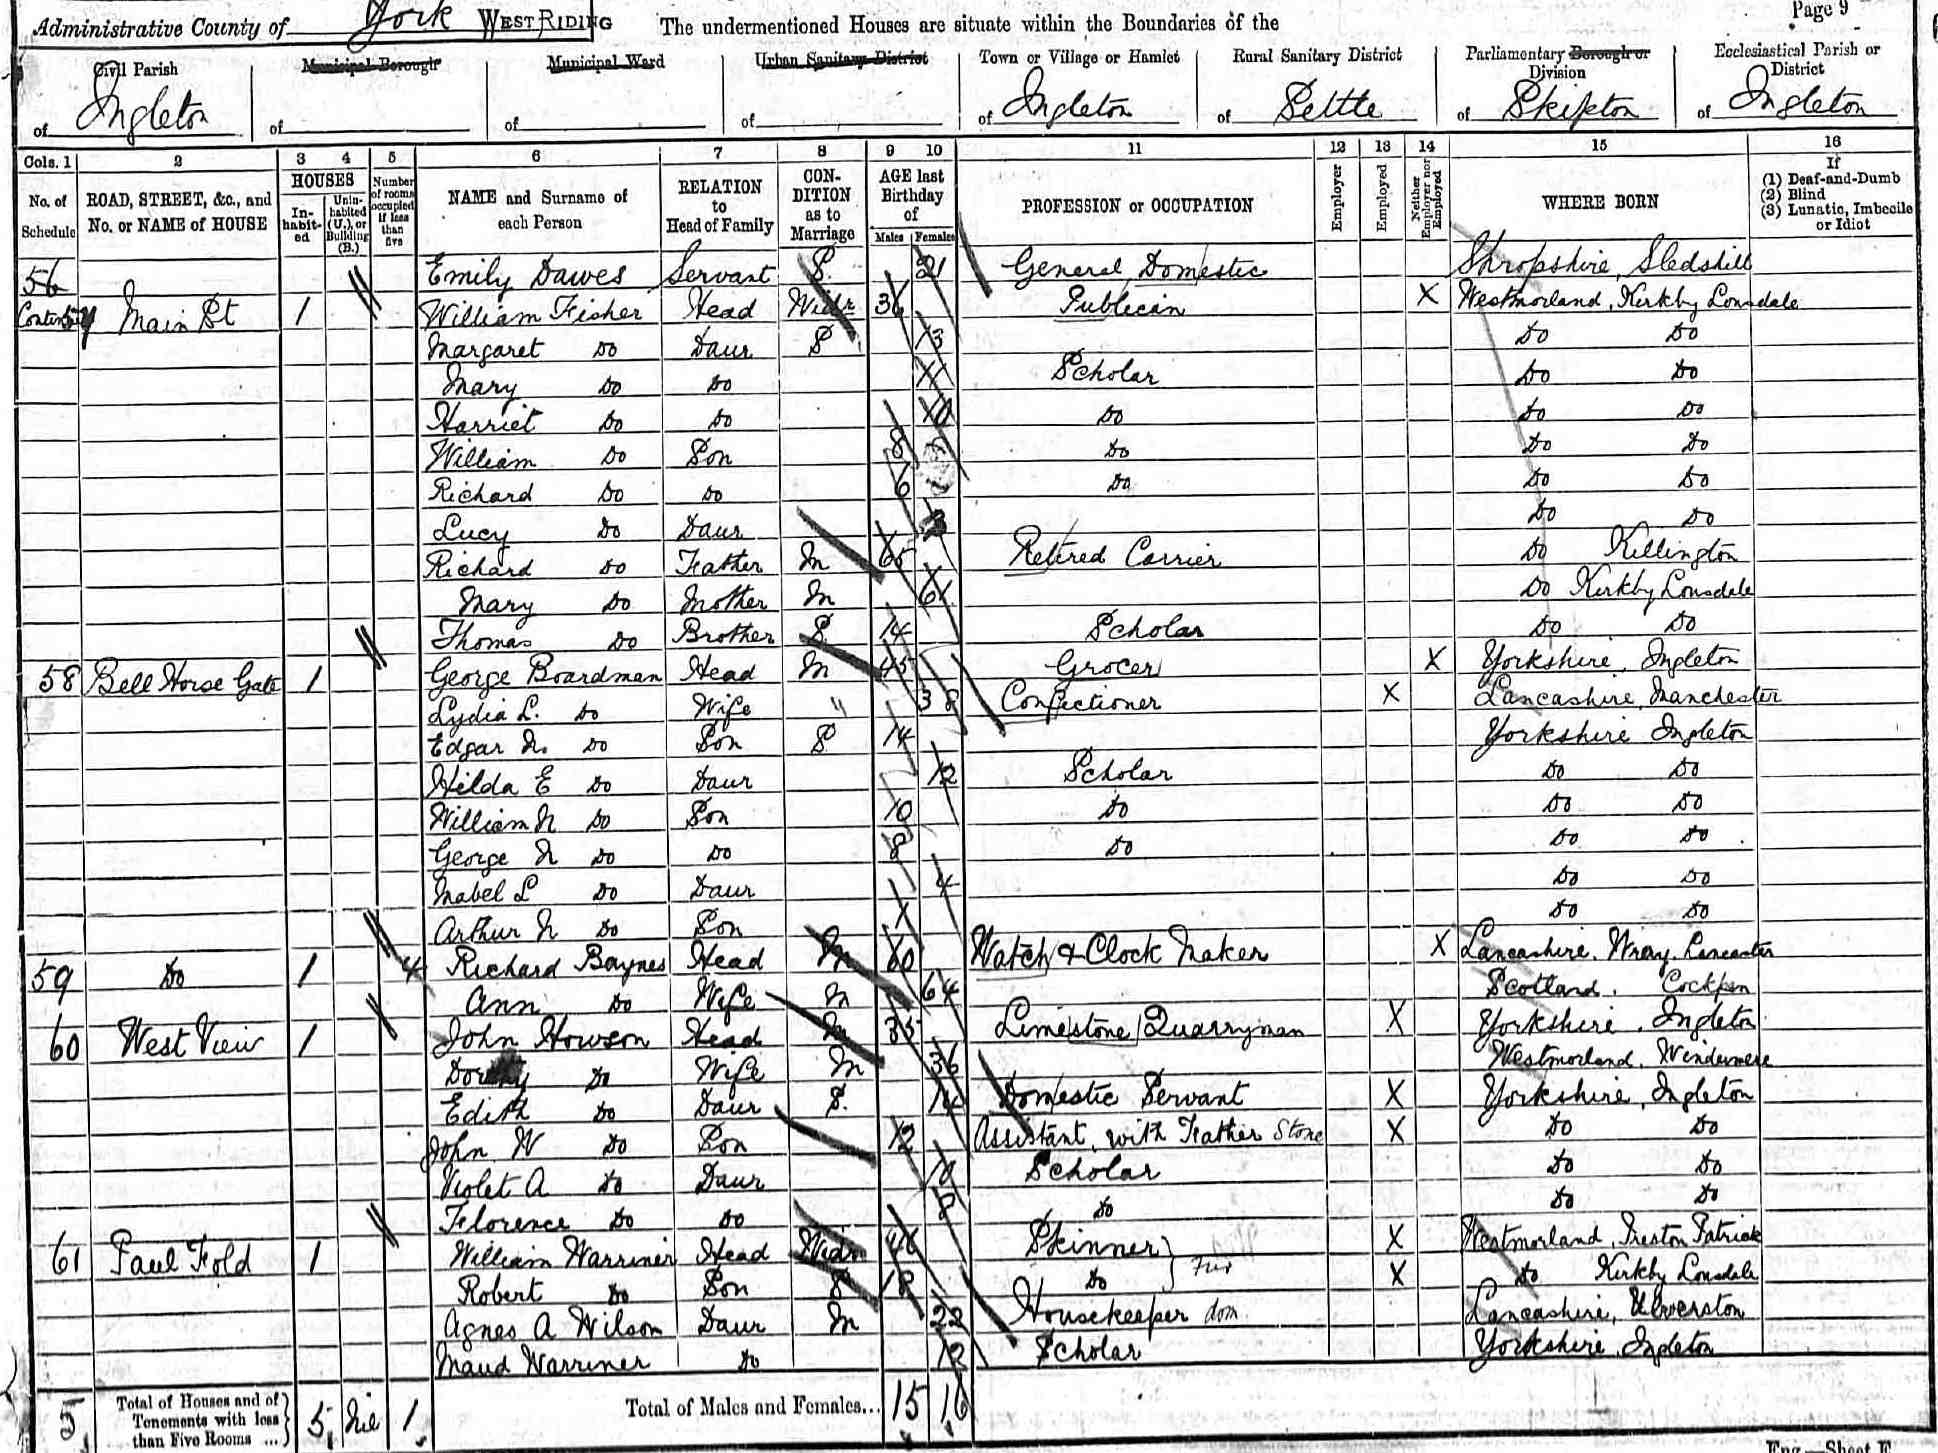 Page 9
Administrative County of York WEST RIDING The undermentioned Houses are situate within the Boundaries of the
Civil Parish Municipal Borough Municipal Ward Urban Sanitary District Town or Village or Hamlet Rural Sanitary District Parliamentary Borough or Division Ecclesiastical Parish or District
of Ingleton of of of of Ingleton of Settle of Skipton of Ingleton
Cols. 1 2 3 4 5 6 7 8 9 10 11 12 13 14 15 16
No. of Schedule ROAD, STREET, &c., and No. or NAME of HOUSE HOUSES In-habit-ed Unin-habited (U.), or Building (B.) Number of rooms occupied if less than five NAME and Surname of each Person RELATION to Head of Family CON-DITION as to Marriage AGE last Birthday of Males Females PROFESSION or OCCUPATION Employer Employed Neither Employer nor Employed WHERE BORN If (1) Deaf-and-Dumb (2) Blind (3) Lunatic, Imbecile or Idiot
56 Emily Dawes Servant S. 21 General Domestic Shropshire, Sledshill
Main St 1 William Fisher Head Widr 36 Publican X Westmorland, Kirkby Lonsdale
Margaret Do Daur S 13 Do Do
Mary Do Do 11 Scholar Do Do
Harriet Do Do 10 Do Do Do
William Do Son 8 Do Do Do
Richard Do Do 6 Do Do Do
Lucy Do Daur 3 Do Do
Richard Do Father M 65 Retired Carrier Do Killington
Mary Do Mother M 61 Do Kirkby Lonsdale
Thomas Do Brother S. 14 Scholar Do Do
58 Bell Horse Gate 1 George Boardman Head M 45 Grocer X Yorkshire, Ingleton
Lydia L. Do Wife " 38 Confectioner X Lancashire, Manchester
Edgar N. Do Son S 14 Yorkshire Ingleton
Hilda E Do Daur 12 Scholar Do Do
William N Do Son 10 Do Do Do
George N Do Do 8 Do Do Do
Mabel L Do Daur 4 Do Do
Arthur N Do Son 1 Do Do
59 Do 1 4 Richard Baynes Head M 60 Watch & Clock Maker X Lancashire, Wray, Lancaster
Ann Do Wife M 64 Scotland. Cockpen
60 West View 1 John Howson Head M 35 Limestone Quarryman X Yorkshire, Ingleton
Do Wife M 36 Westmorland, Windermere
Edith Do Daur S. 14 Domestic Servant X Yorkshire, Ingleton
John W Do Son 12 Assistant, with Father Stone X Do Do
Violet A Do Daur 10 Scholar Do Do
Florence Do Do 8 Do Do Do
61 Paul Fold 1 William Warriner Head Widr 46 Skinner } Fur X Westmorland, Preston Patrick
Robert Do Son S 18 Do X Do Kirkby Lonsdale
Agnes A Wilson Daur M 22 Housekeeper dom Lancashire, Ulverston
Maud Warriner Do 12 Scholar Yorkshire, Ingleton
5 Total of Houses and of Tenements with less than Five Rooms ... } 5 Nil 1 Total of Males and Females... 15 16
Eng.—Sheet E.